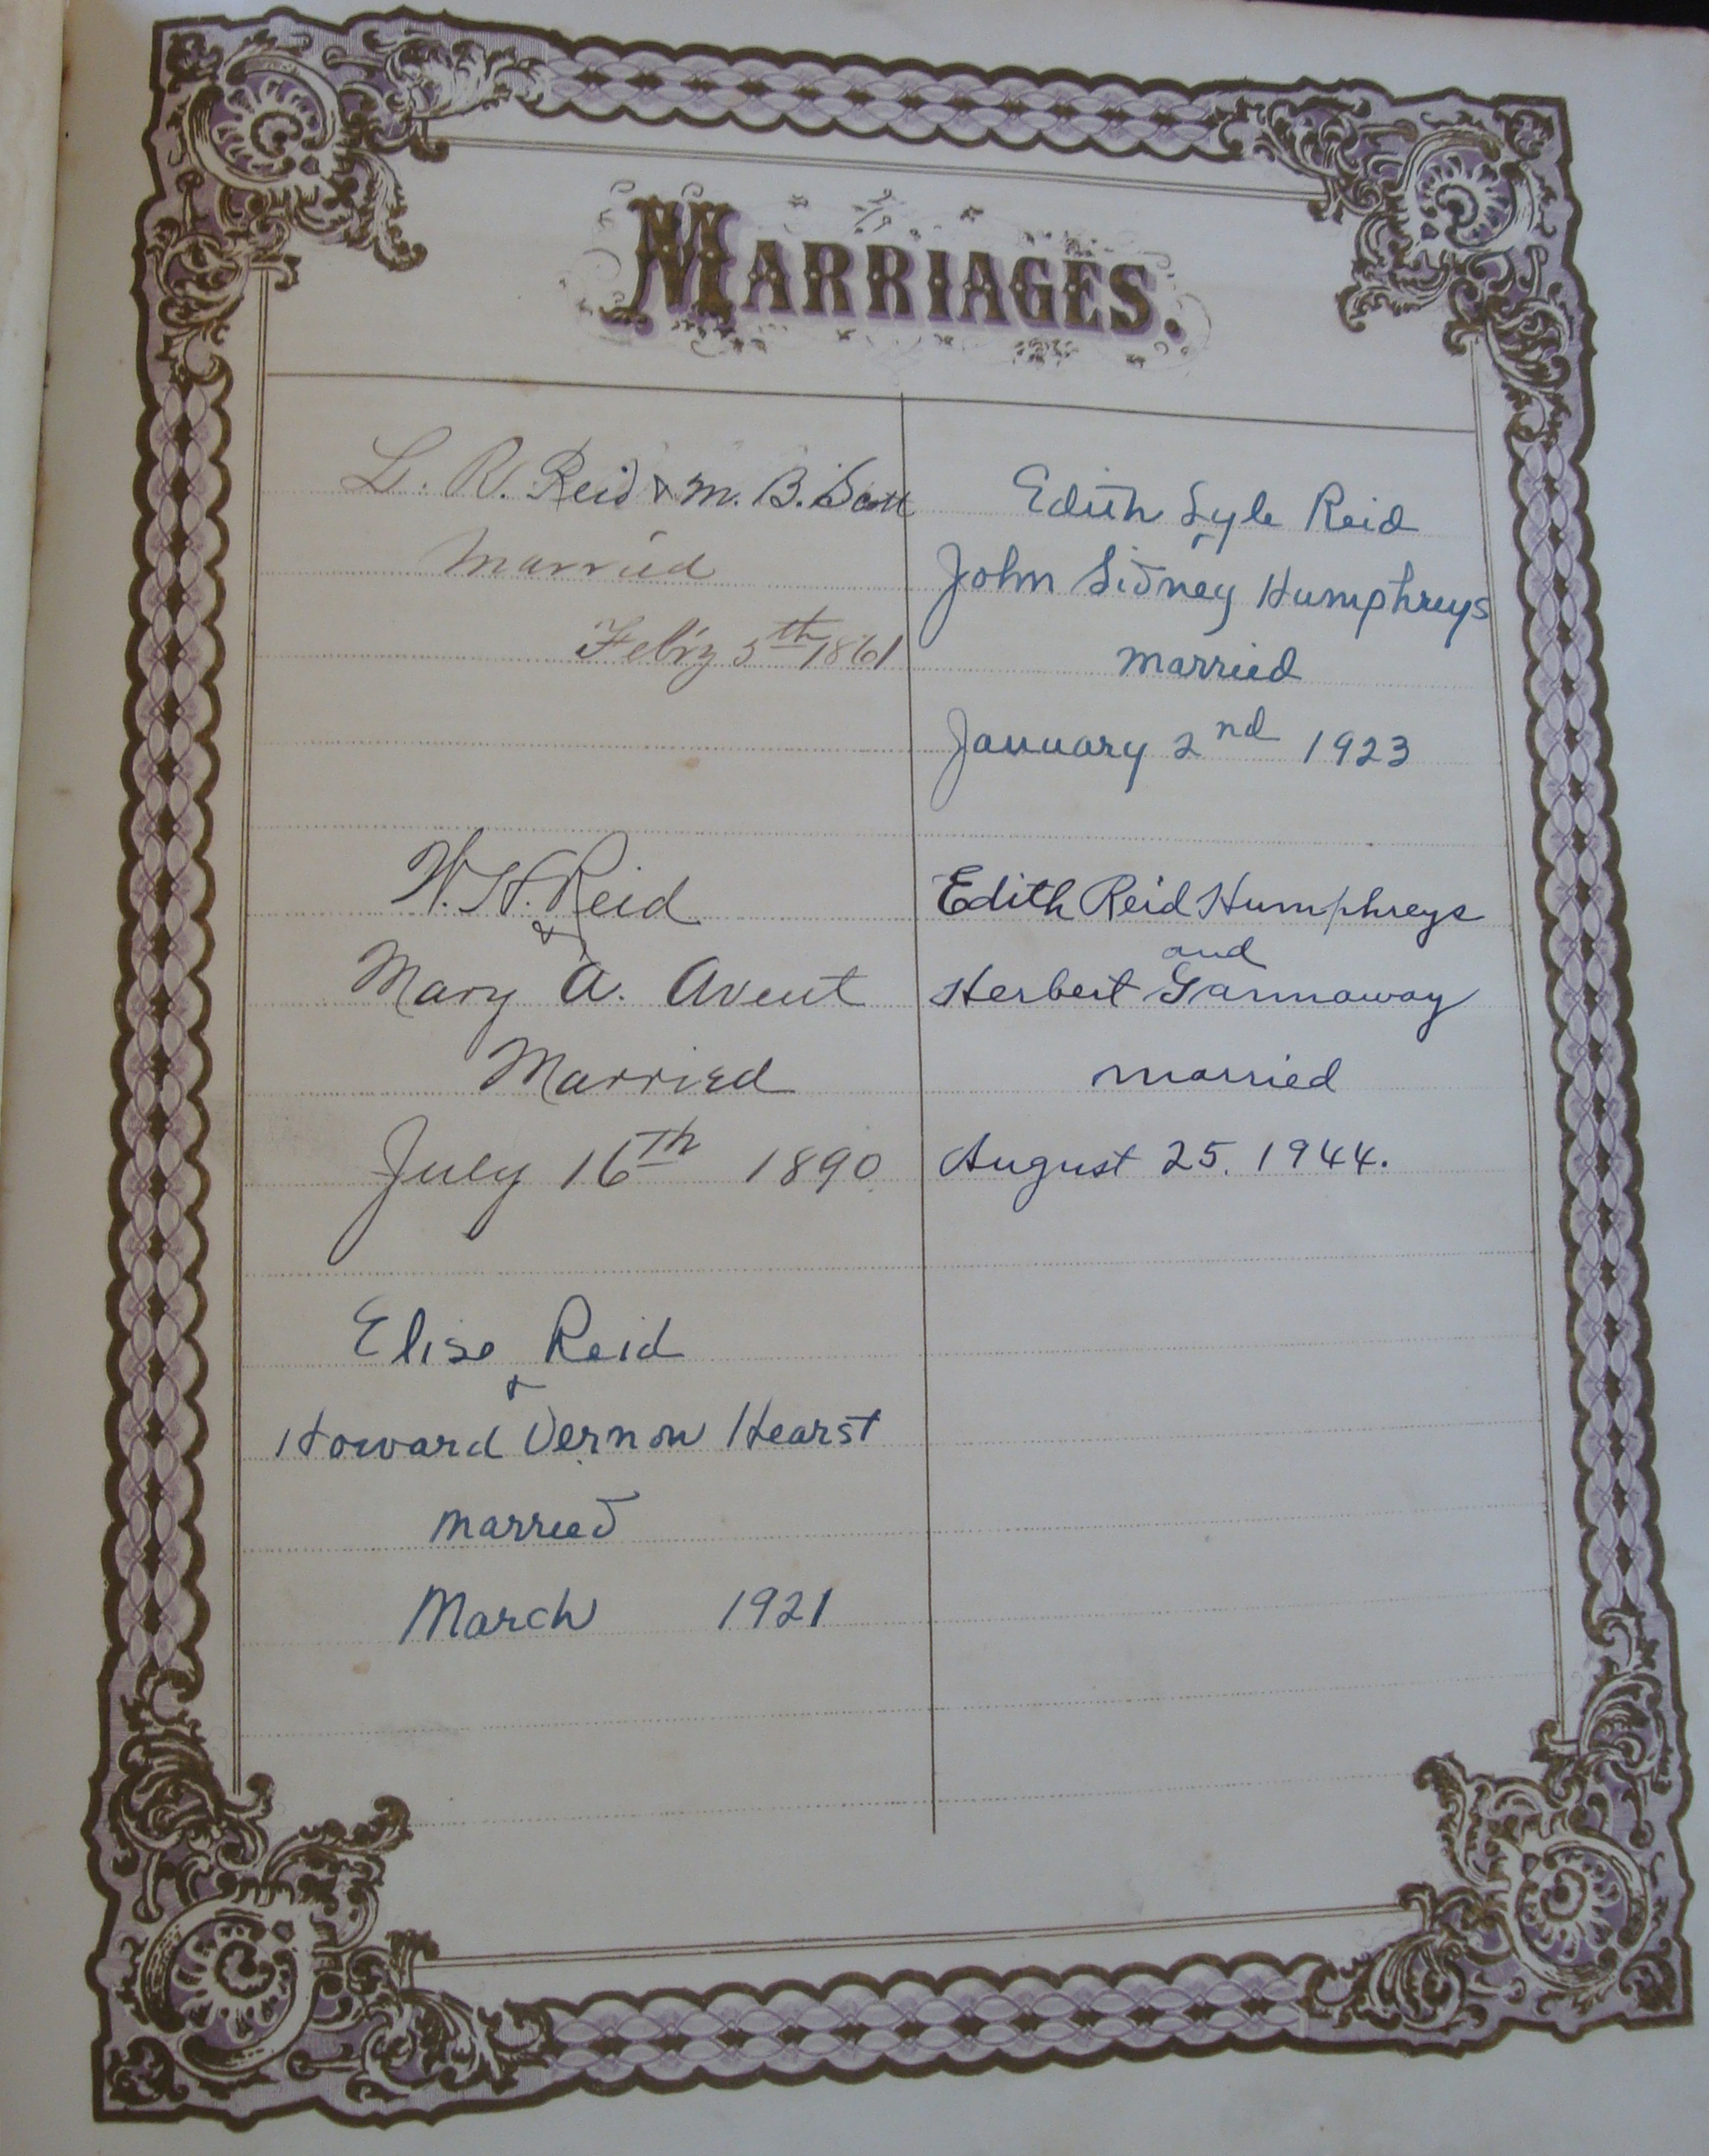 MARRIAGES.
L. R. Reid & M. B. Scott
Married
Feb'ry 5th 1861
W. H. Reid
&
Mary A. Avent
Married
July 16th 1890
Elise Reid
&
Howard Vernon Hearst
married
March 1921
Edith Lyle Reid
&
John Sidney Humphreys
married
January 2nd 1923
Edith Reid Humphreys
and
Herbert Gannaway
married
August 25. 1944.